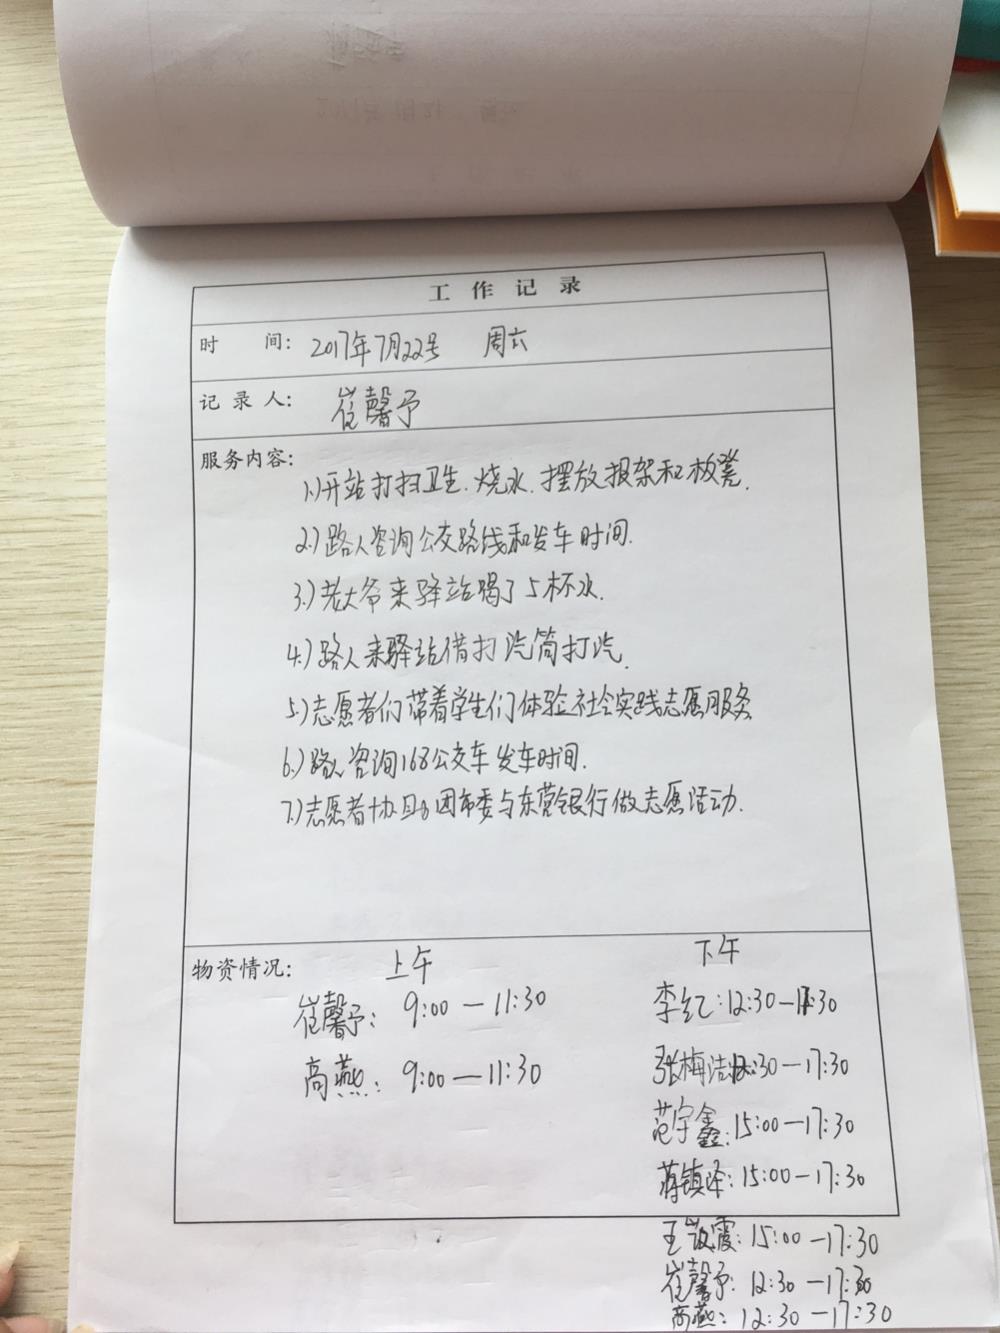 工作记录
时 间: 2017年7月22号 周六
记录人: 崔馨予
服务内容:
1.)开站打扫卫生、烧水、摆放报架和板凳.
2.)路人咨询公交路线和发车时间.
3.)老大爷来驿站喝了5杯水.
4.)路人来驿站借打汽筒打汽.
5.)志愿者们带着学生们体验社会实践志愿服务
6.)路人咨询168公交车发车时间.
7.)志愿者协助团市委与东营银行做志愿活动.
物资情况: 上午 下午
崔馨予: 9:00—11:30 李红:12:30—17:30
高燕: 9:00—11:30 张梅洁:12:30—17:30
范宇鑫:15:00—17:30
蒋镇泽:15:00—17:30
王 霞:15:00—17:30
崔馨予:12:30—17:30
高燕:12:30—17:30